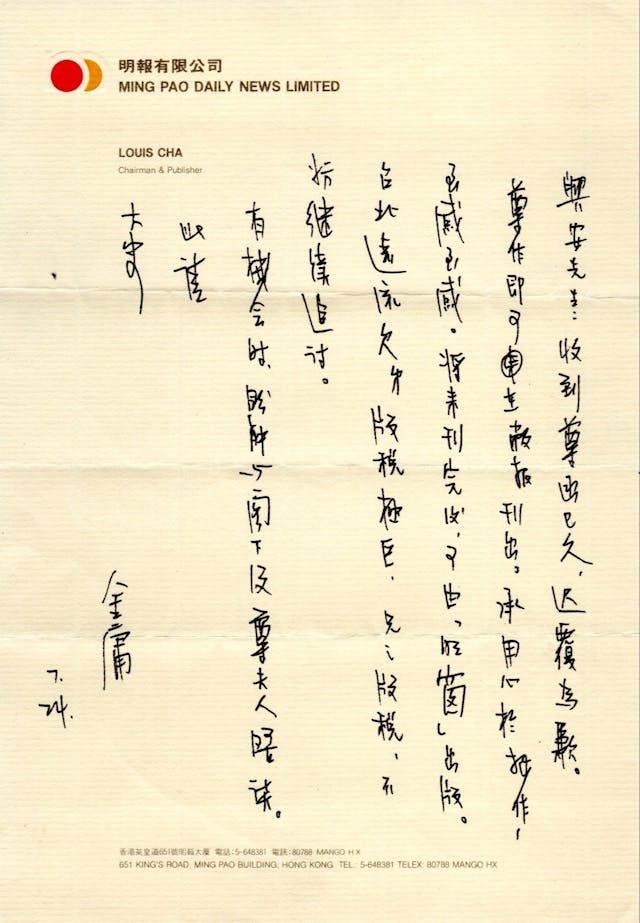 明報有限公司
MING PAO DAILY NEWS LIMITED
LOUIS CHA
Chairman & Publisher
興安先生：收到尊函已久，迟覆為歉。
尊作即可在敝報刊出。承用心於拙作，
至感至感。將来刊完後，可由「明窗」出版。
台北遠流欠弟版税極巨，兄之版税，不
妨继續追討。
有機会時，盼能与閣下及尊夫人晤談。
此請
大安
金庸
7.24.
香港英皇道651號明報大厦 電話:5-648381 電訊:80788 MANGO HX
651 KING'S ROAD, MING PAO BUILDING, HONG KONG TEL.: 5-648381 TELEX: 80788 MANGO HX